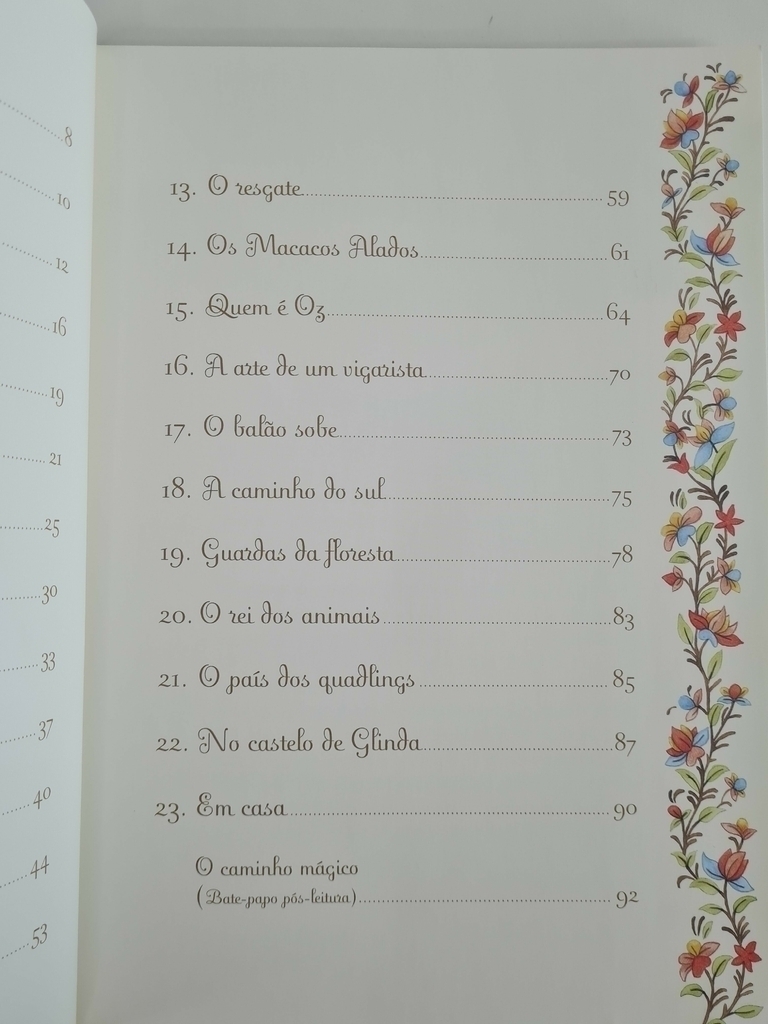 8
10
12
16
19
21
25
30
33
37
40
44
53
13. O resgate 59
14. Os Macacos Alados 61
15. Quem é Oz 64
16. A arte de um vigarista 70
17. O balão sobe 73
18. A caminho do sul 75
19. Guardas da floresta 78
20. O rei dos animais 83
21. O país dos quadlings 85
22. No castelo de Glinda 87
23. Em casa 90
O caminho mágico
(Bate-papo pós-leitura) 92